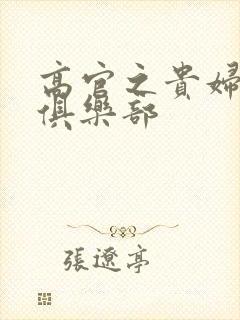 高官之貴婦
俱樂部
張遼亭